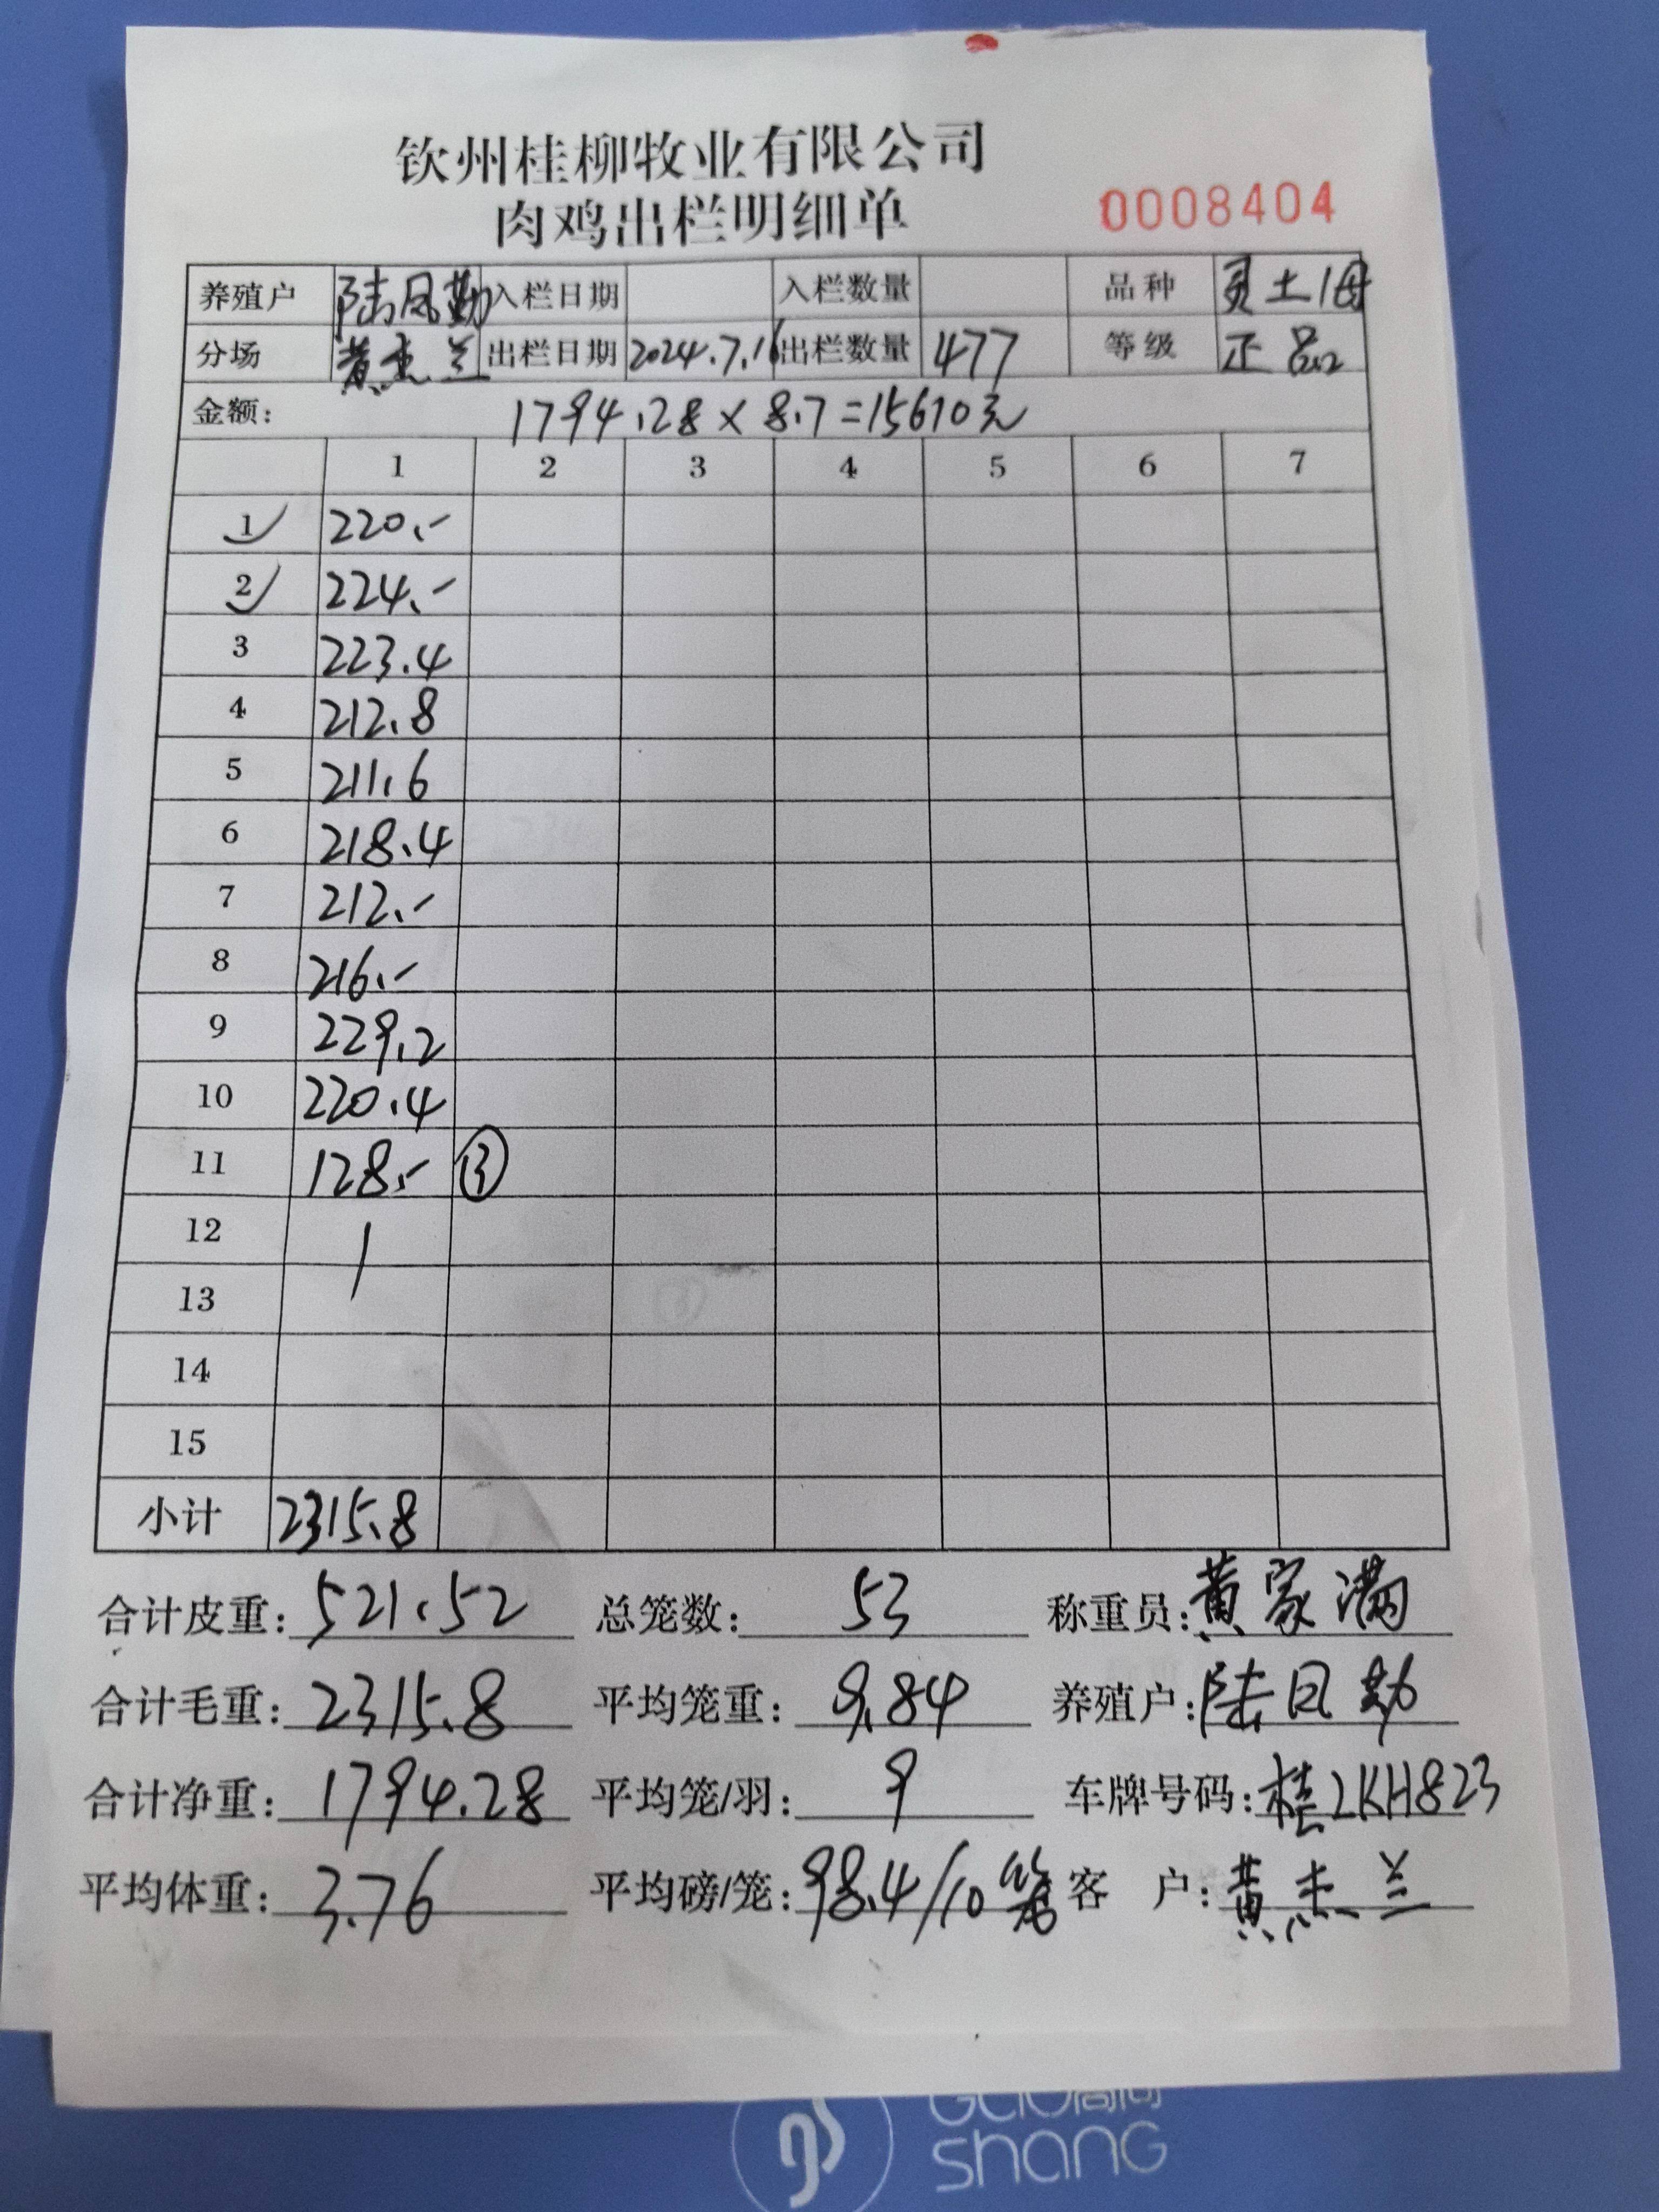 钦州桂柳牧业有限公司
肉鸡出栏明细单 0008404
养殖户 陆凤勤 入栏日期 入栏数量 品种 灵土1母
分场 黄杰兰 出栏日期 2024.7.16 出栏数量 477 等级 正品
金额: 1794.28×8.7=15610元
1 2 3 4 5 6 7
1 220.-
2 224.-
3 223.4
4 212.8
5 211.6
6 218.4
7 212.-
8 216.-
9 229.2
10 220.4
11 128.- ③
12
13
14
15
小计 2315.8
合计皮重: 521.52 总笼数: 53 称重员: 黄家满
合计毛重: 2315.8 平均笼重: 9.84 养殖户: 陆凤勤
合计净重: 1794.28 平均笼/羽: 9 车牌号码: 桂LKH823
平均体重: 3.76 平均磅/笼: 98.4/10笼 客 户: 黄杰兰
shang